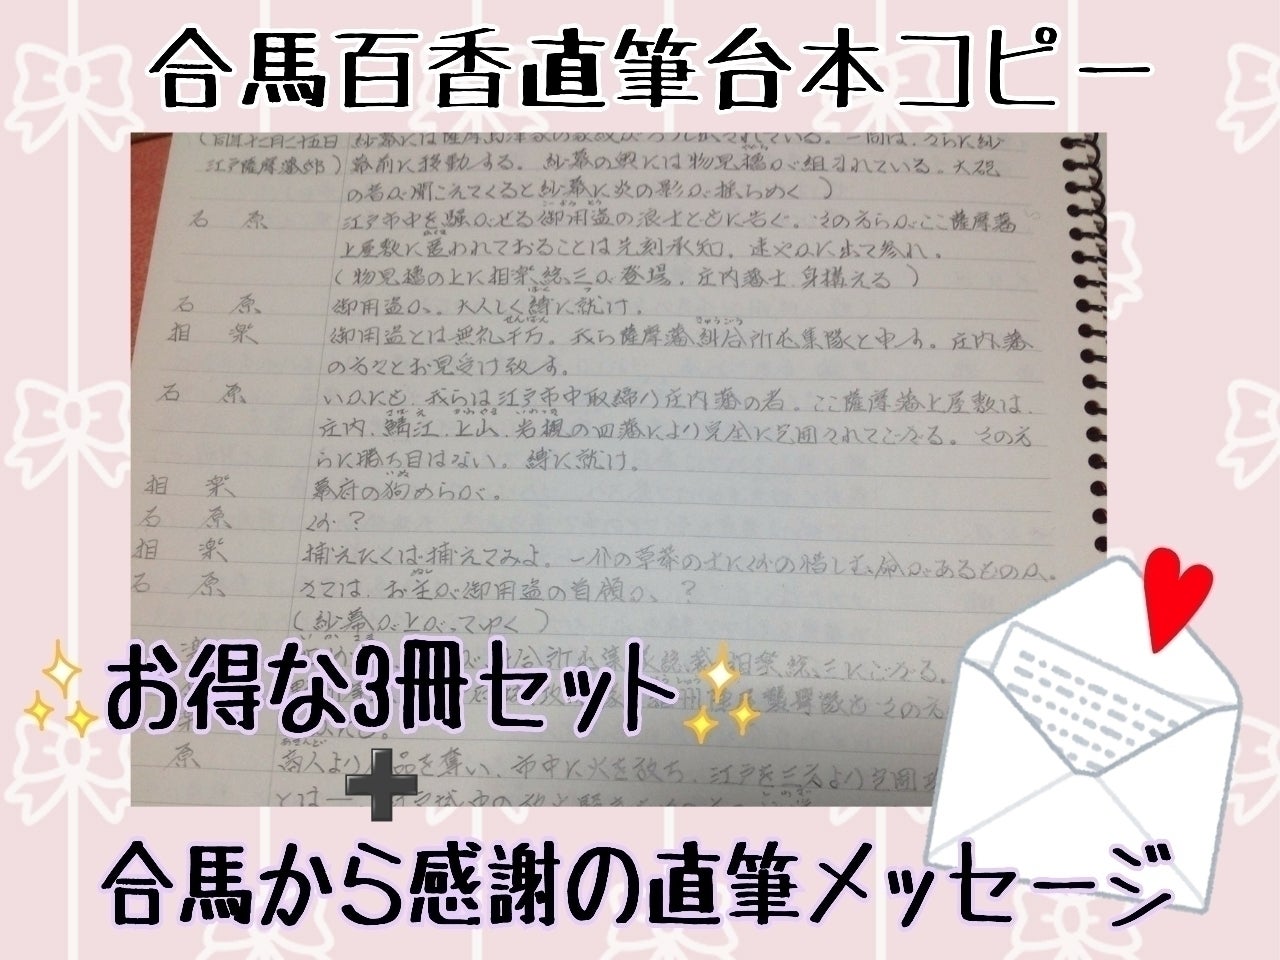 合馬百香直筆台本コピー
(同年十二月二十五日 紗幕には薩摩島津家の家紋が
江戸薩摩藩邸) 幕前に移動する。紗幕の奥には物見櫓が組まれている。大砲
の音が聞こえてくると紗幕に炎の影が揺らめく)
石原 江戸市中を騒がせる御用盗の浪士どもに告ぐ。その方らがここ薩摩藩
上屋敷に匿われておることは先刻承知。速やかに出て参れ。
(物見櫓の上に相楽総三が登場。庄内藩士、身構える)
石原 御用盗か。大人しく縛に就け。
相楽 御用盗とは無礼千万。我ら薩摩藩糾合所屯集隊と申す。庄内藩
の方々とお見受け致す。
石原 いかにも、我らは江戸市中取締り庄内藩の者。ここ薩摩藩上屋敷は、
庄内、鯖江、上山、岩槻の四藩により完全に包囲されてござる。その方
らに勝ち目はない。縛に就け。
相楽 幕府の狗めらが。
石原 くが?
相楽 捕えたくば捕えてみよ。一介の草莽の士に
石原 さては、お主が御用盗の首領か?
(紗幕が上がってゆく)
相楽総三にござる。
お得な3冊セット
原 商人より 品を奪い、市中に火を放ち、江戸を三方より包囲
とは一
➕
合馬から感謝の直筆メッセージ